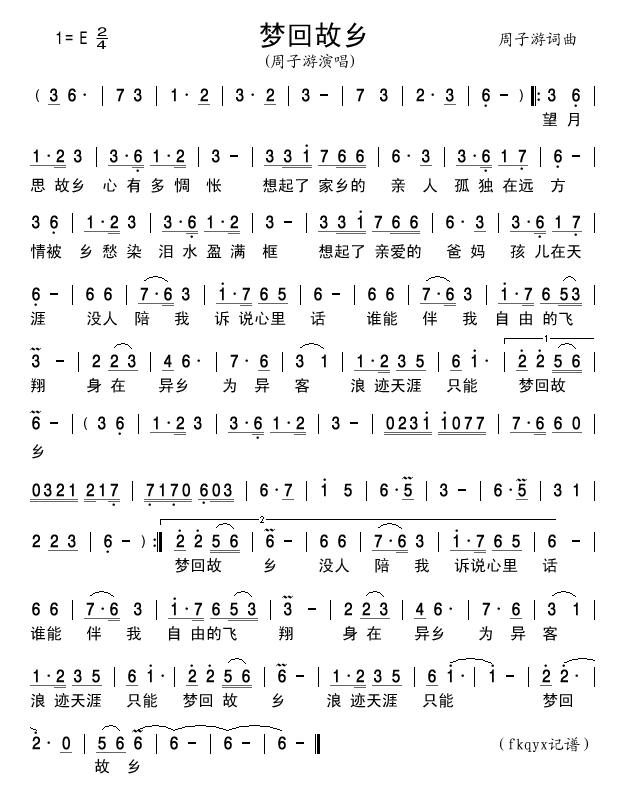 1=E 2/4
梦回故乡
周子游词曲
(周子游演唱)
( 3 6· | 7 3 | 1·2 | 3·2 | 3 - | 7 3 | 2·3 | 6 - ) ‖: 3 6 |
望 月
1·2 3 | 3·6 1·2 | 3 - | 3 3 1 7 6 6 | 6·3 | 3·6 1 7 | 6 - |
思 故乡 心 有 多 惆 怅 想起了 家乡的 亲 人 孤 独 在远 方
3 6 | 1·2 3 | 3·6 1·2 | 3 - | 3 3 1 7 6 6 | 6·3 | 3·6 1 7 |
情被 乡 愁 染 泪 水 盈 满 框 想起了 亲爱的 爸 妈 孩 儿在天
6 - | 6 6 | 7·6 3 | 1·7 6 5 | 6 - | 6 6 | 7·6 3 | 1·7 6 5 3 |
涯 没人 陪 我 诉 说心里 话 谁能 伴 我 自 由 的飞
3 - | 2 2 3 | 4 6· | 7·6 | 3 1 | 1·2 3 5 | 6 1· | 1 2 2 5 6 |
翔 身 在 异乡 为 异 客 浪 迹天涯 只能 梦回故
6 - | ( 3 6 | 1·2 3 | 3·6 1·2 | 3 - | 0 2 3 1 1 0 7 7 | 7·6 6 0 |
乡
0 3 2 1 2 1 7 | 7 1 7 0 6 0 3 | 6·7 | 1 5 | 6·5 | 3 - | 6·5 | 3 1 |
2 2 3 | 6 - ) :‖ 2 2 2 5 6 | 6 - | 6 6 | 7·6 3 | 1·7 6 5 | 6 - |
梦回故 乡 没人 陪 我 诉说心里 话
6 6 | 7·6 3 | 1·7 6 5 3 | 3 - | 2 2 3 | 4 6· | 7·6 | 3 1 |
谁能 伴 我 自 由的飞 翔 身 在 异乡 为 异 客
1·2 3 5 | 6 1· | 2 2 5 6 | 6 - | 1·2 3 5 | 6 1· | 1 - | 2 2· |
浪 迹天涯 只能 梦回 故 乡 浪 迹天涯 只能 梦回
2·0 | 5 6 6 | 6 - | 6 - | 6 - ‖
故 乡
(fkqyx记谱)